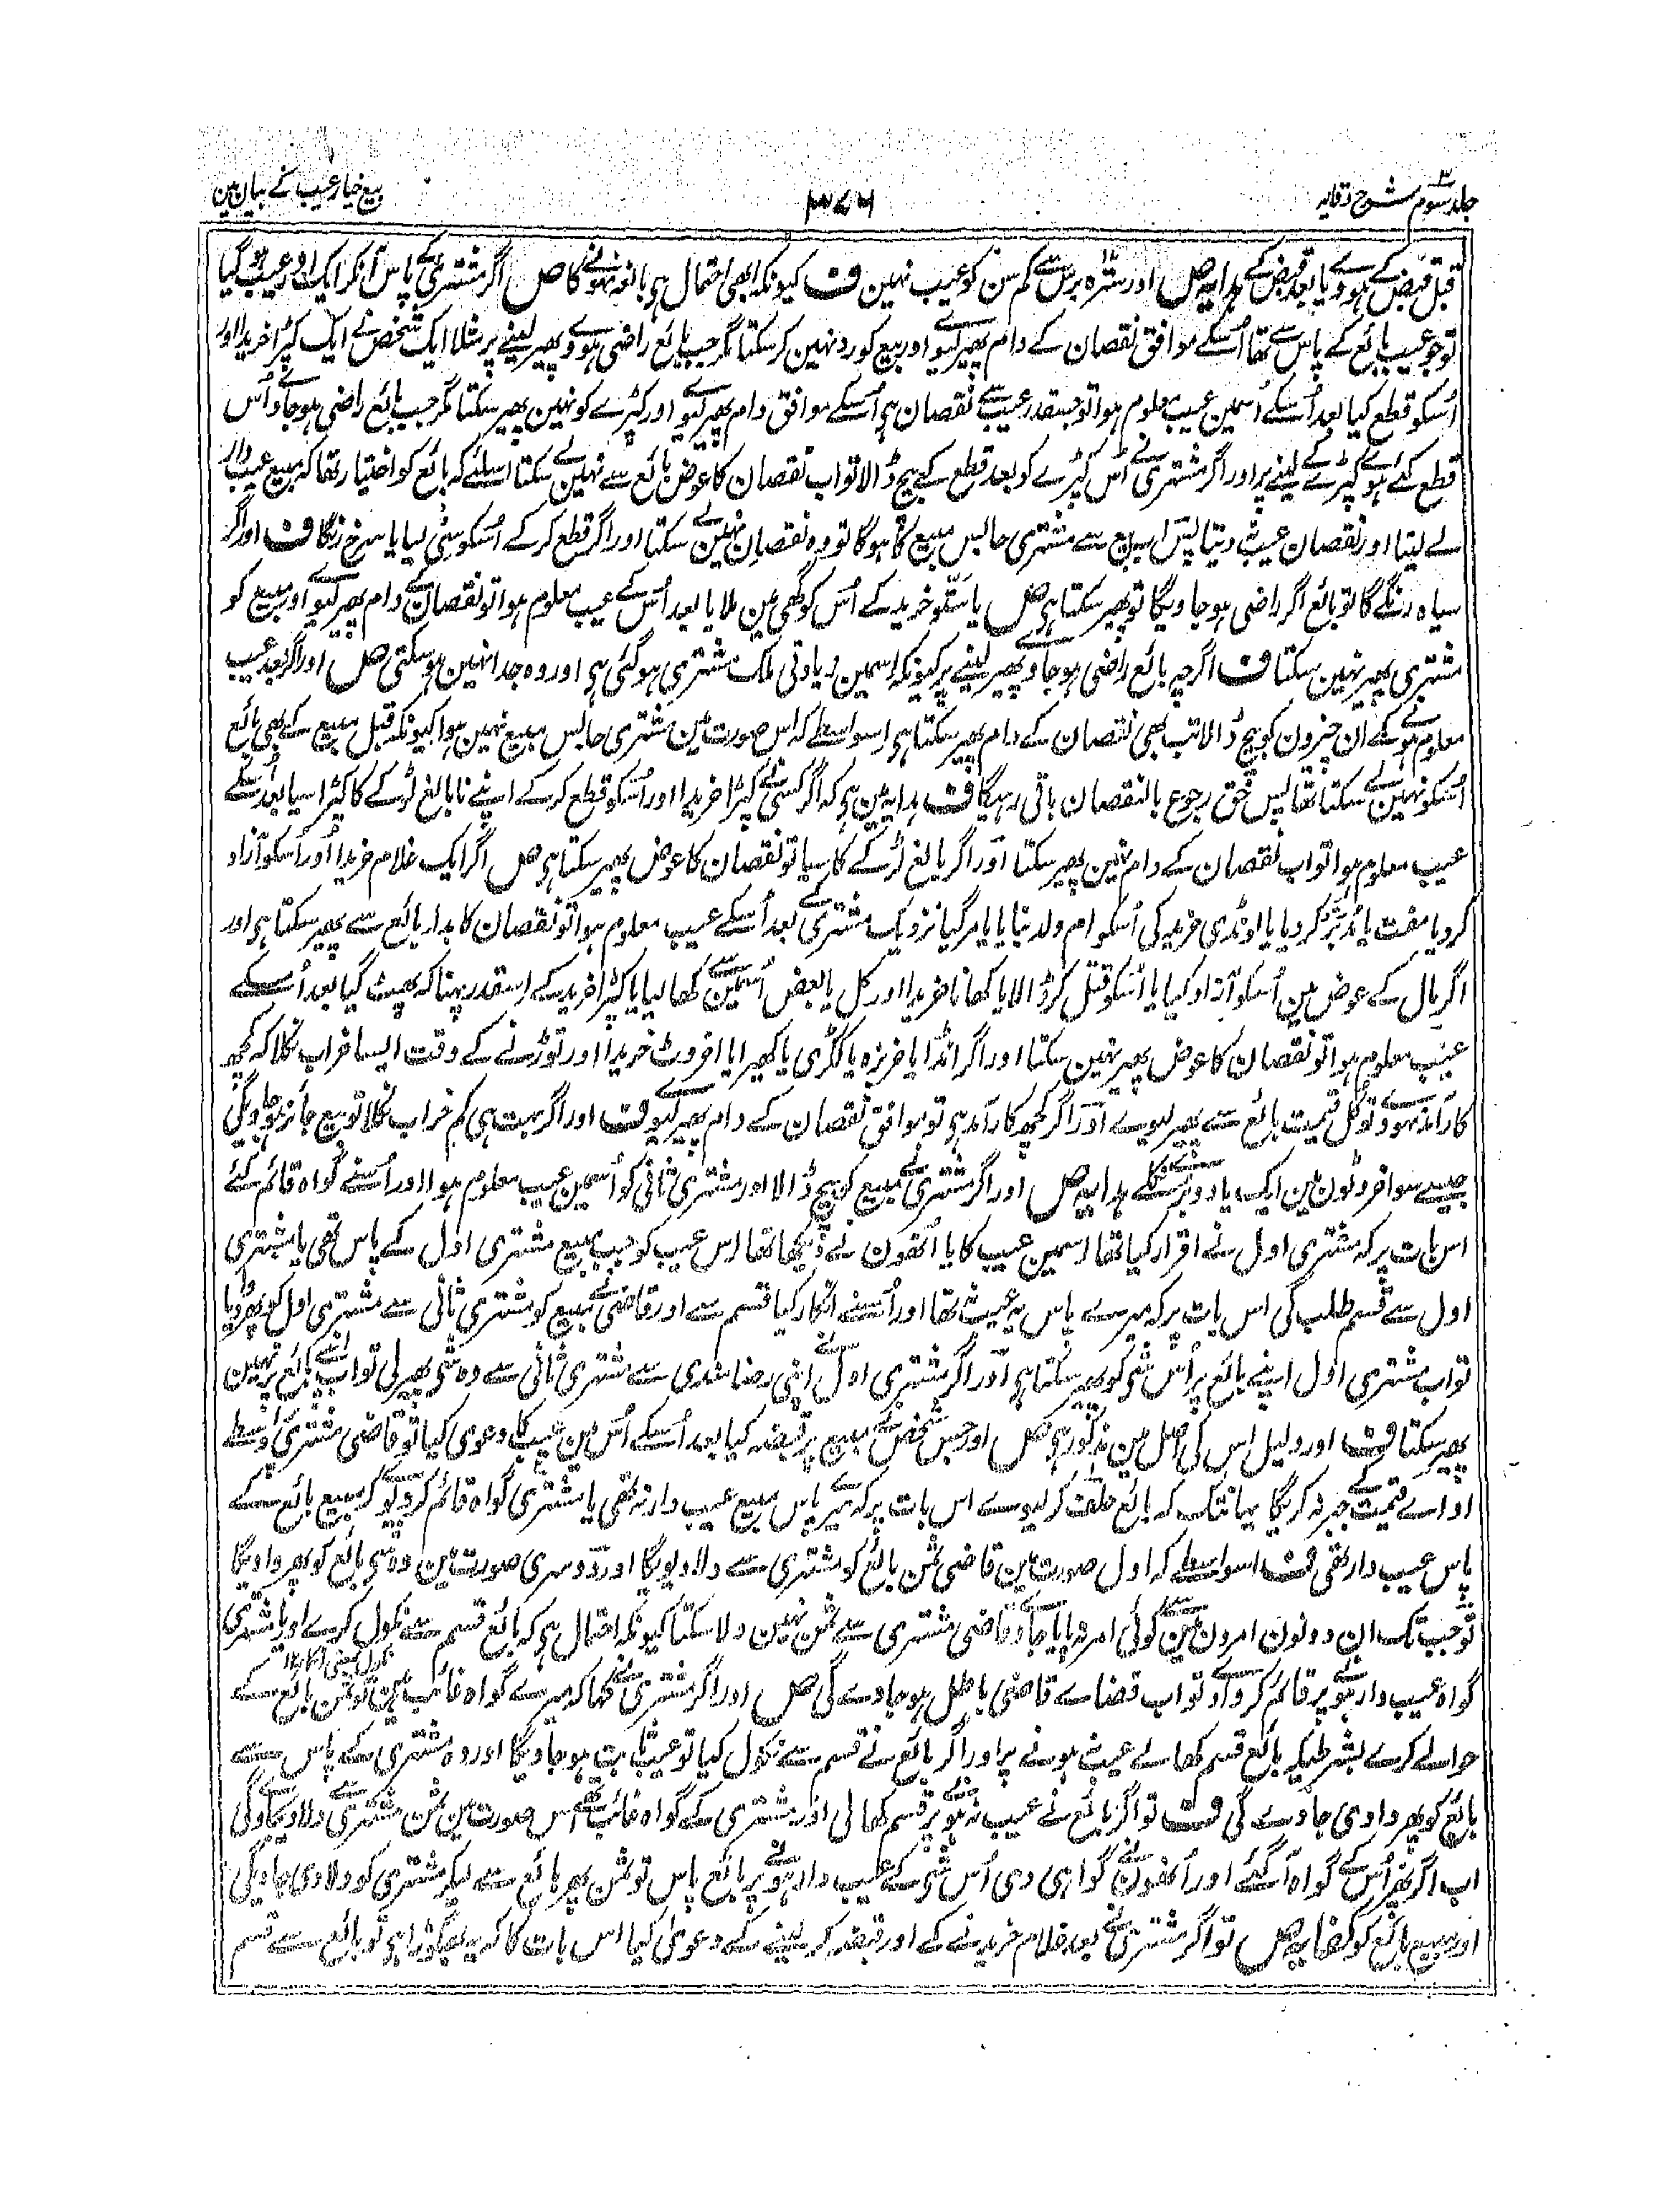 جلد سوم شرح وقایہ
۳۷۶
بیع خیار عیب کے بیان مین
قبل قبض کے ہووے یا بعد قبض کے ہدایہ ص اور سترہ برس سے کم سن کو عیب نہین ف کیونکہ ابھی احتمال ہی بالغہ نہونے کا ص اگر مشتری کے پاس آنکر ایک اور عیب ہو گیا
تو جو عیب بائع کے پاس سے تھا اُسکے موافق نقصان کے دام پھیر لیوے اور بیع کو رد نہین کر سکتا مگر جب بائع راضی ہووے پھیر لینے پر مثلا ایک شخص نے ایک کپڑا خریدا اور
اُسکو قطع کیا بعد اُسکے اُسمین عیب معلوم ہوا تو جسقدر عیب سے نقصان ہی اُسکے موافق دام پھیر لیوے اور کپڑے کو نہین پھیر سکتا مگر جب بائع راضی ہو جاوے اُس
قطع کئے ہوئے کپڑے کے لینے پر اور اگر مشتری نے اُس کپڑے کو بعد قطع کے بیچ ڈالا تو اب نقصان کا عوض بائع سے نہین لے سکتا اسلئے کہ بائع کو اختیار تھا کہ مبیع عیب دار
لے لیتا اور نقصان عیب نہ دیتا پس اب بیع سے مشتری حابس مبیع کا ہوگا تو وہ نقصان نہین لے سکتا اور اگر قطع کر کے اُسکو سی لیا یا سرخ رنگا ف اور اگر
سیاہ رنگے گا تو بائع اگر راضی ہو جاویگا تو پھیر سکتا ہی ص یا ستو خرید کے اُس کو گھی مین ملایا بعد اُس کے عیب معلوم ہوا تو نقصان کے دام پھیر لیوے اور مبیع کو
مشتری پھیر نہین سکتا ف اگرچہ بائع راضی ہو جاوے پھیر لینے پر کیونکہ اسمین زیادتی ملک مشتری ہو گئی ہی اور وہ جدا نہین ہو سکتی ص اور اگر بعد عیب
معلوم ہونے کے ان چیزون کو بیچ ڈالا تب بھی نقصان کے دام پھیر سکتا ہی اسواسطے کہ اس صورت مین مشتری حابس مبیع نہین ہوا کیونکہ قبل بیع کے بھی بائع
اُسکو نہین لے سکتا تھا پس حق رجوع بالنقصان باقی رہیگا ف ہدایہ مین ہی کہ اگر کسی نے کپڑا خریدا اور اُسکو قطع کر کے اپنے نابالغ لڑکے کا کپڑا سیا بعد اُسکے
عیب معلوم ہوا تو اب نقصان کے دام نہین پھیر سکتا اور اگر بالغ لڑکے کا سیا تو نقصان کا عوض پھیر سکتا ہی ص اگر ایک غلام خریدا اور اُسکو آزاد
کر دیا مفت یا مُدبّر کر دیا یا لونڈی خرید کی اُسکو ام ولد بنایا یا مر گیا نزدیک مشتری کے بعد اُسکے عیب معلوم ہوا تو نقصان کا بدلہ بائع سے پھیر سکتا ہی اور
اگر مال کے عوض مین اُسکو آزاد کیا یا اُسکو قتل کر ڈالا یا کھانا خریدا اور کل یا بعض اُسمین سے کھا لیا یا کپڑا خرید کے اسقدر پہنا کہ پھٹ گیا بعد اُسکے
عیب معلوم ہوا تو نقصان کا عوض پھیر نہین سکتا اور اگر انڈا یا خربزہ یا ککڑی یا کھیرا یا اخروٹ خریدا اور توڑنے کے وقت ایسا خراب نکلا کہ کچھ
کار آمد نہووے تو کل قیمت بائع سے پھیر لیوے اور اگر کچھ کار آمد ہی تو موافق نقصان کے دام پھیر لیوے ف اور اگر بہت ہی کم خراب نکلا تو بیع جائز ہو جاویگی
جیسے سو اخروٹون مین ایک یا دو بُرے نکلے ہدایہ ص اور اگر مشتری نے مبیع کو بیچ ڈالا اور مشتری ثانی کو اُسمین عیب معلوم ہوا اور اُسنے گواہ قائم کئے
اس بات پر کہ مشتری اول نے اقرار کیا تھا اسمین عیب کا یا اُنھون نے دیکھا تھا اس عیب کو جب مبیع مشتری اول کے پاس تھی یا مشتری
اول سے قسم طلب کی اس بات پر کہ میرے پاس یہ عیب نتھا اور اُسنے انکار کیا قسم سے اور قاضی نے مبیع کو مشتری ثانی سے مشتری اول کو پھروا دیا
تو اب مشتری اول اپنے بائع پر اُس شی کو پھیر سکتا ہی اور اگر مشتری اول نے اپنی رضامندی سے مشتری ثانی سے وہ شی پھیر لی تو اب اپنے بائع پر نہین
پھیر سکتا ف اور دلیل اس کی اصل مین مذکور ہی ص اور جس شخص نے مبیع پر قبضہ کیا بعد اُسکے اُس مین عیب کا دعوی کیا تو قاضی مشتری پر واسطے
ادا اے قیمت کے جبر نہ کریگا یہانتک کہ بائع حلف کر لیوے اس بات پر کہ میرے پاس مبیع عیب دار نہ تھی یا مشتری گواہ قائم کر دیوے کہ مبیع بائع کے
پاس عیب دار تھی ف اسواسطے کہ اول صورت مین قاضی ثمن بائع کو مشتری سے دلا دیویگا اور دوسری صورت مین وہ شی بائع کو پھروا دیگا
تو جب تک ان دونون امرون مین سے کوئی امر نہ پایا جاوے قاضی مشتری سے ثمن نہین دلا سکتا کیونکہ احتمال ہی کہ بائع قسم سے نکول کرے اور یا مشتری
نکول یعنی انکار ۱۲
گواہ عیب دار ہونے پر قائم کر دے تو اب قضاے قاضی باطل ہو جاوے گی ص اور اگر مشتری نے کہا کہ میرے گواہ غائب ہین تو ثمن بائع کے
حوالے کرے بشرطیکہ بائع قسم کھا لے عیب نہونے پر اور اگر بائع نے قسم سے نکول کیا تو عیب ثابت ہو جاویگا اور وہ مشتری کے پاس سے
بائع کو پھروا دی جاوے گی ف تو اگر بائع نے عیب نہ ہونے پر قسم کھا لی اور مشتری کے گواہ غائب تھے اُس صورت مین ثمن مشتری سے دلا دی جاوے گی
اب اگر پھر اُس کے گواہ آ گئے اور اُنھون نے گواہی دی اُس شی کے عیب دار ہونے پر بائع پاس تو ثمن پھر بائع سے لیکر مشتری کو دلا دی جاویگی
اور مبیع بائع کو کفایہ ص تو اگر مشتری نے بعد غلام خریدنے کے اور قبضہ کر لینے کے دعویٰ کیا اس بات کا کہ یہ بھگوڑا ہی تو بائع سے قسم